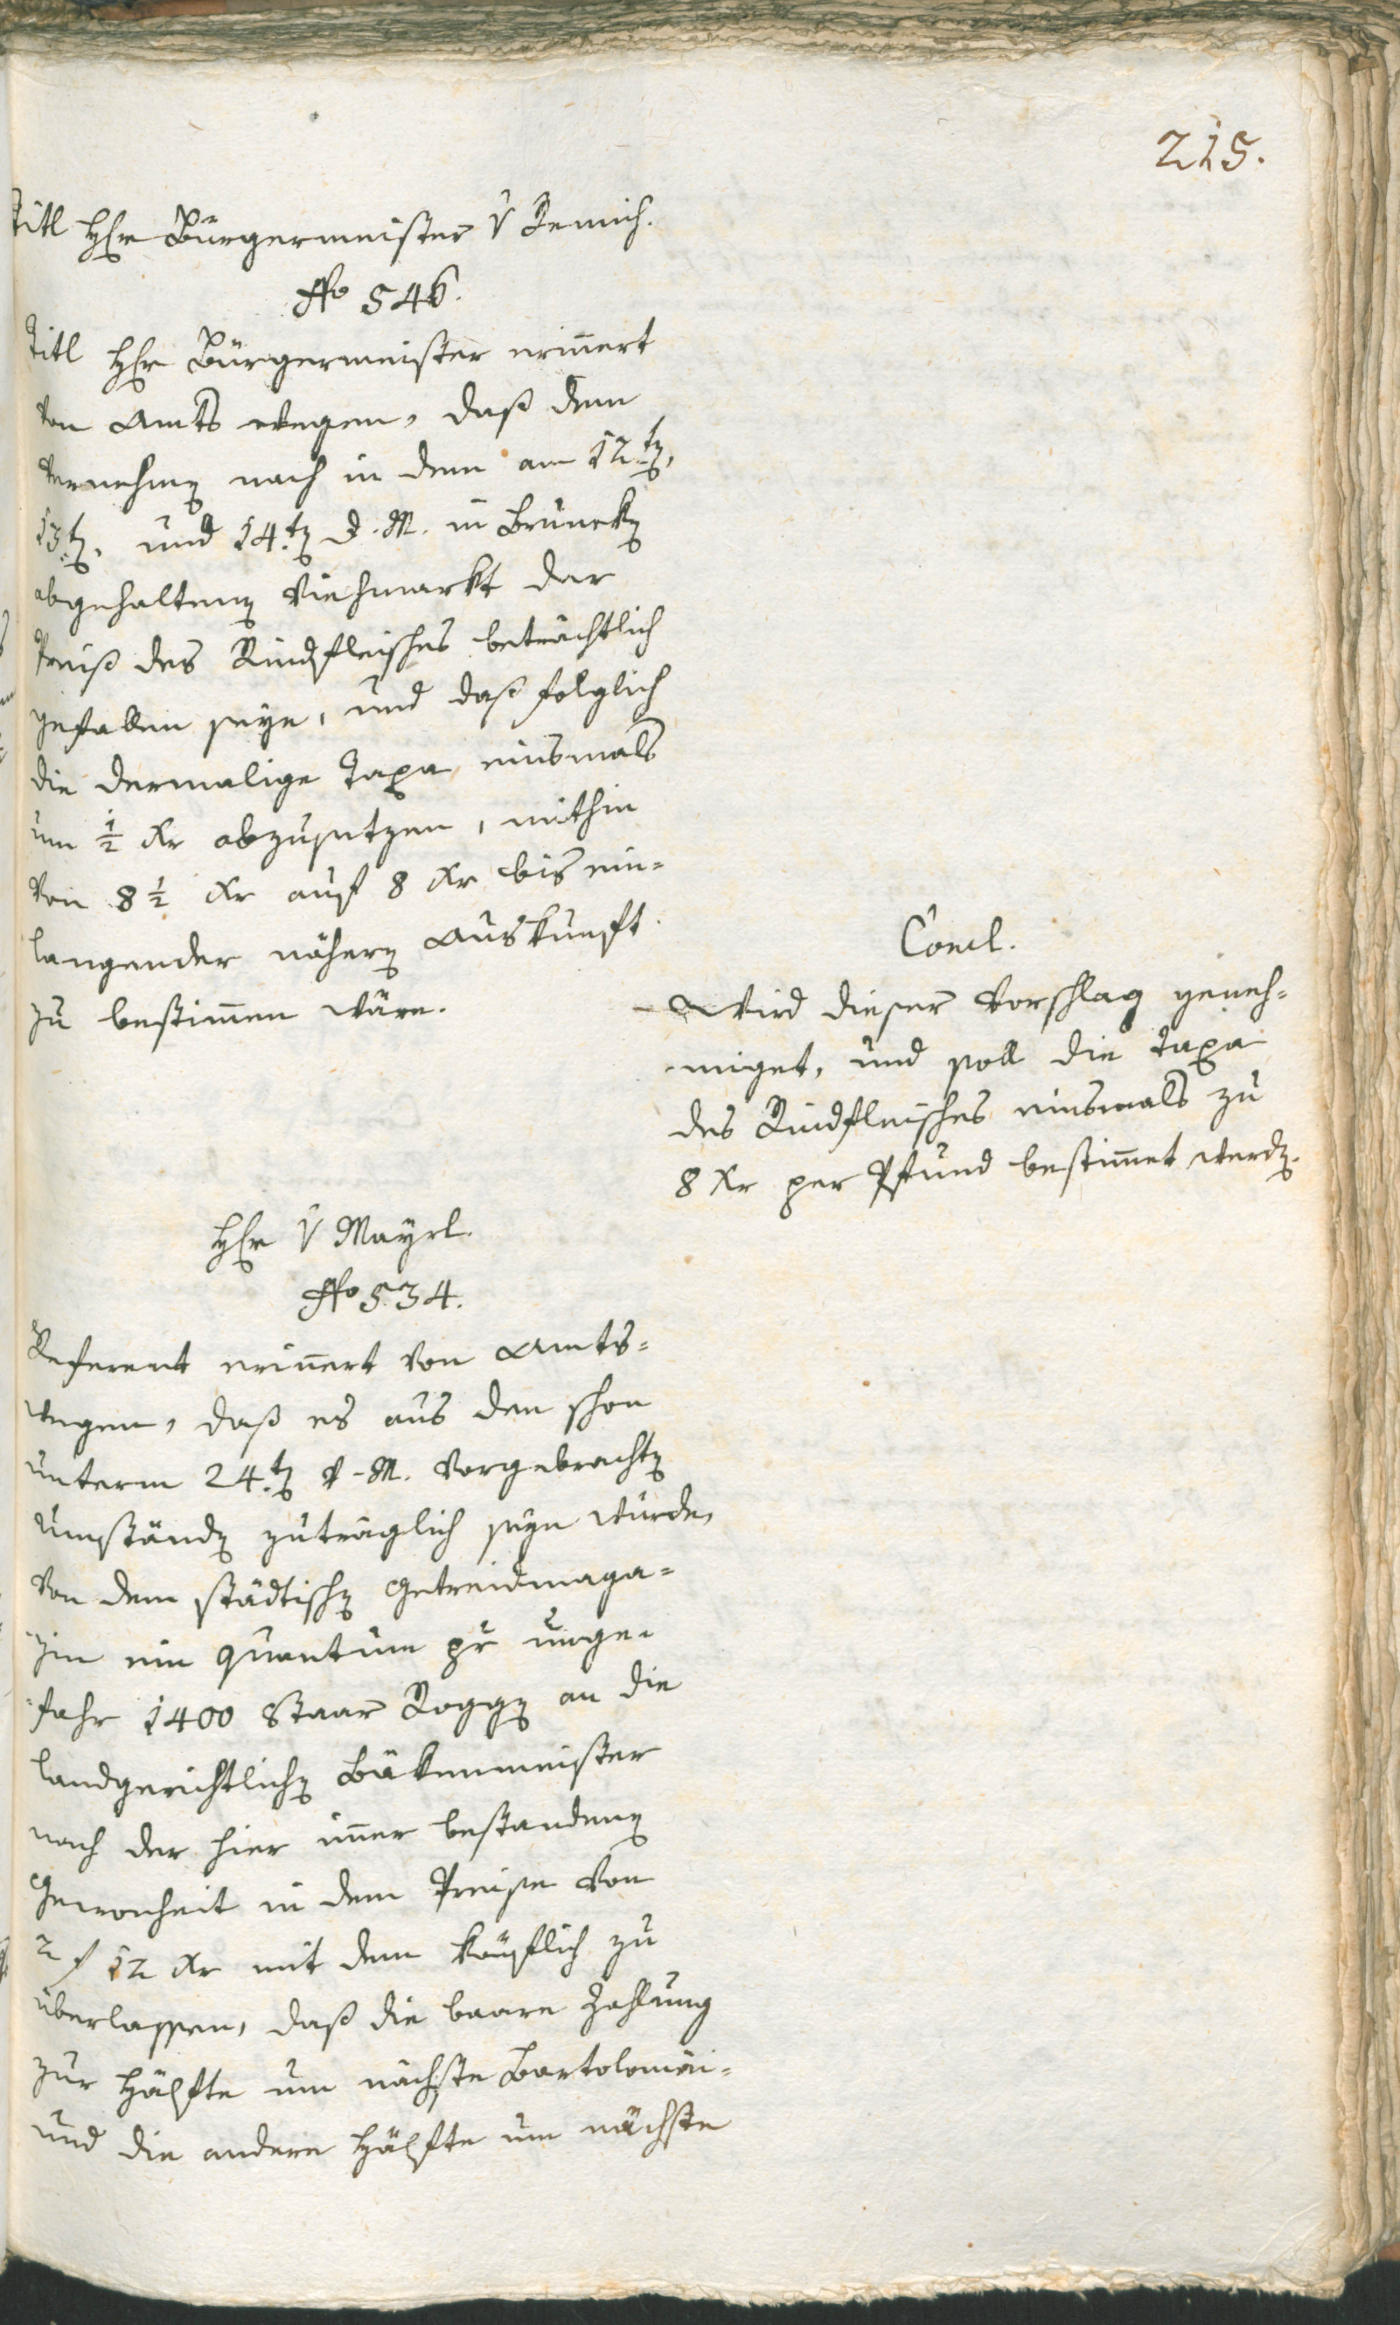 215.
Titl Hr Bürgermeister v Remich.
No 546.
Titl Hr Bürgermeister erinnert
von Amts wegen, daß dem
vernehmen nach in dem am 12ten,
13ten, und 14ten d. M. in Bruneken
abgehaltenen Viehmarkt der
Preiß des Rindfleisches beträchtlich
gefallen seye, und daß folglich
die dermalige Taxa einsmals
um ½ Xr abzusetzen, mithin
von 8 ½ Xr auf 8 Xr bis ein=
langender nähern Auskunft
zu bestimmen wäre.
Concl.
Wird dieser Vorschlag geneh=
miget, und soll die Taxa
des Rindfleisches einsmals zu
8 Xr per Pfund bestimmet werden.
Hr v Mayrl.
No 534.
Referent erinnert von Amts=
wegen, daß es aus den schon
unterm 24ten v. M. vorgebrachten
Umständen zuträglich seyn würde,
von dem städtischen Getreidmaga=
zin ein Quantum pr unge=
fahr 1400 Staar Roggen an die
landgerichtlichen Bäkenmeister
nach der hier immer bestandenen
Gewonheit in dem Preise von
2 f 12 Xr mit dem käuflich zu
überlassen, daß die baare Zahlung
zur Hälfte um nächste Bartolomäi=
und die andere Hälfte um nächste